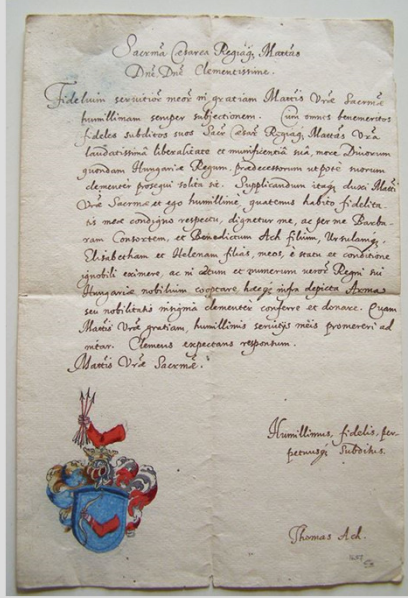 Sacrma Cesarea Regiaq, Mattas
Dne Dne Clementissime.
Fidelium servitior meor in gratiam Mattis Vræ Sacrmæ
humillimam semper subjectionem. Cum omnes benemeritos
fideles subditos suos Sacr Regiaq, Mattas Vra
laudatissima liberalitate et munificentia sua, more Divorum
quondam Hungariæ Regum prædecessorum utpote suorum
clementer prosequi solita sit. Supplicandum itaq, duxi Matti
Vræ Sacrmæ et ego humillime, quatenus habito fidelita-
tis meæ condigno respectu, dignetur me, ac per me Barba-
ram Consortem, et Benedictum Ach filium, Ursulamq,
Elisabetham et Helenam filias, meos, e statu et conditione
ignobili eximere, ac in cætum et numerum veror Regni sui
Hungariæ nobilium cooptare, hæcq, infra depicta Arma
seu nobilitatis insignia clementer conferre et donare. Quam
Mattis Vræ gratiam, humillimis servitijs meis promereri ad-
nitar. Clemens expectans responsum.
Mattis Vræ Sacrmæ.
Humillimus, fidelis, per-
petuusq, Subditus.
Thomas Ach.